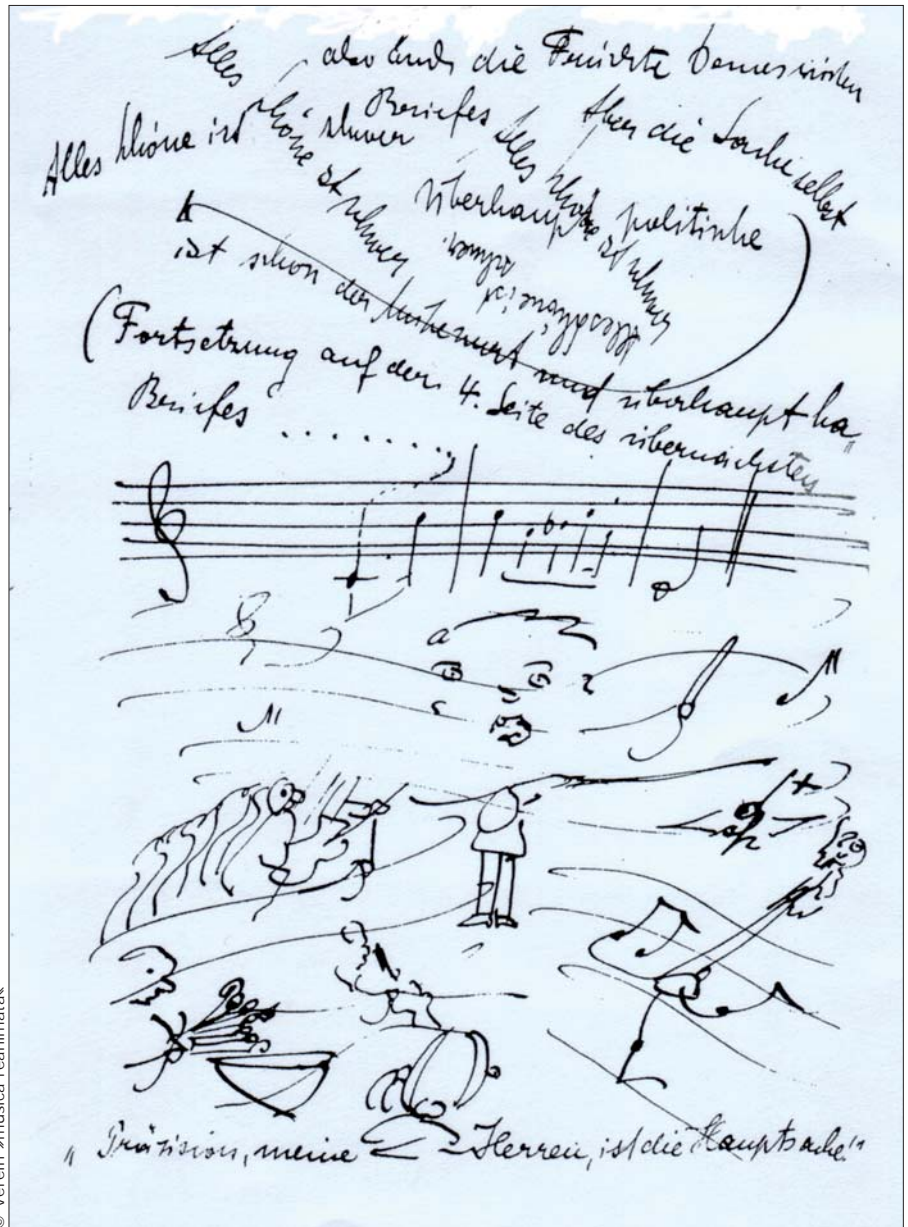 also auch die
Alles schöne ist schwer
Briefes
Aber die Sache selbst
Alles schöne ist schwer
Alles schöne ist schwer
überhaupt politische
Alles schöne ist schwer
ist schon der und überhaupt ha„
(Fortsetzung auf der 4. Seite des übernächsten
Briefes ........
„Präzision, meine Herren, ist die Hauptsache“
© Verein »musica reanimata«